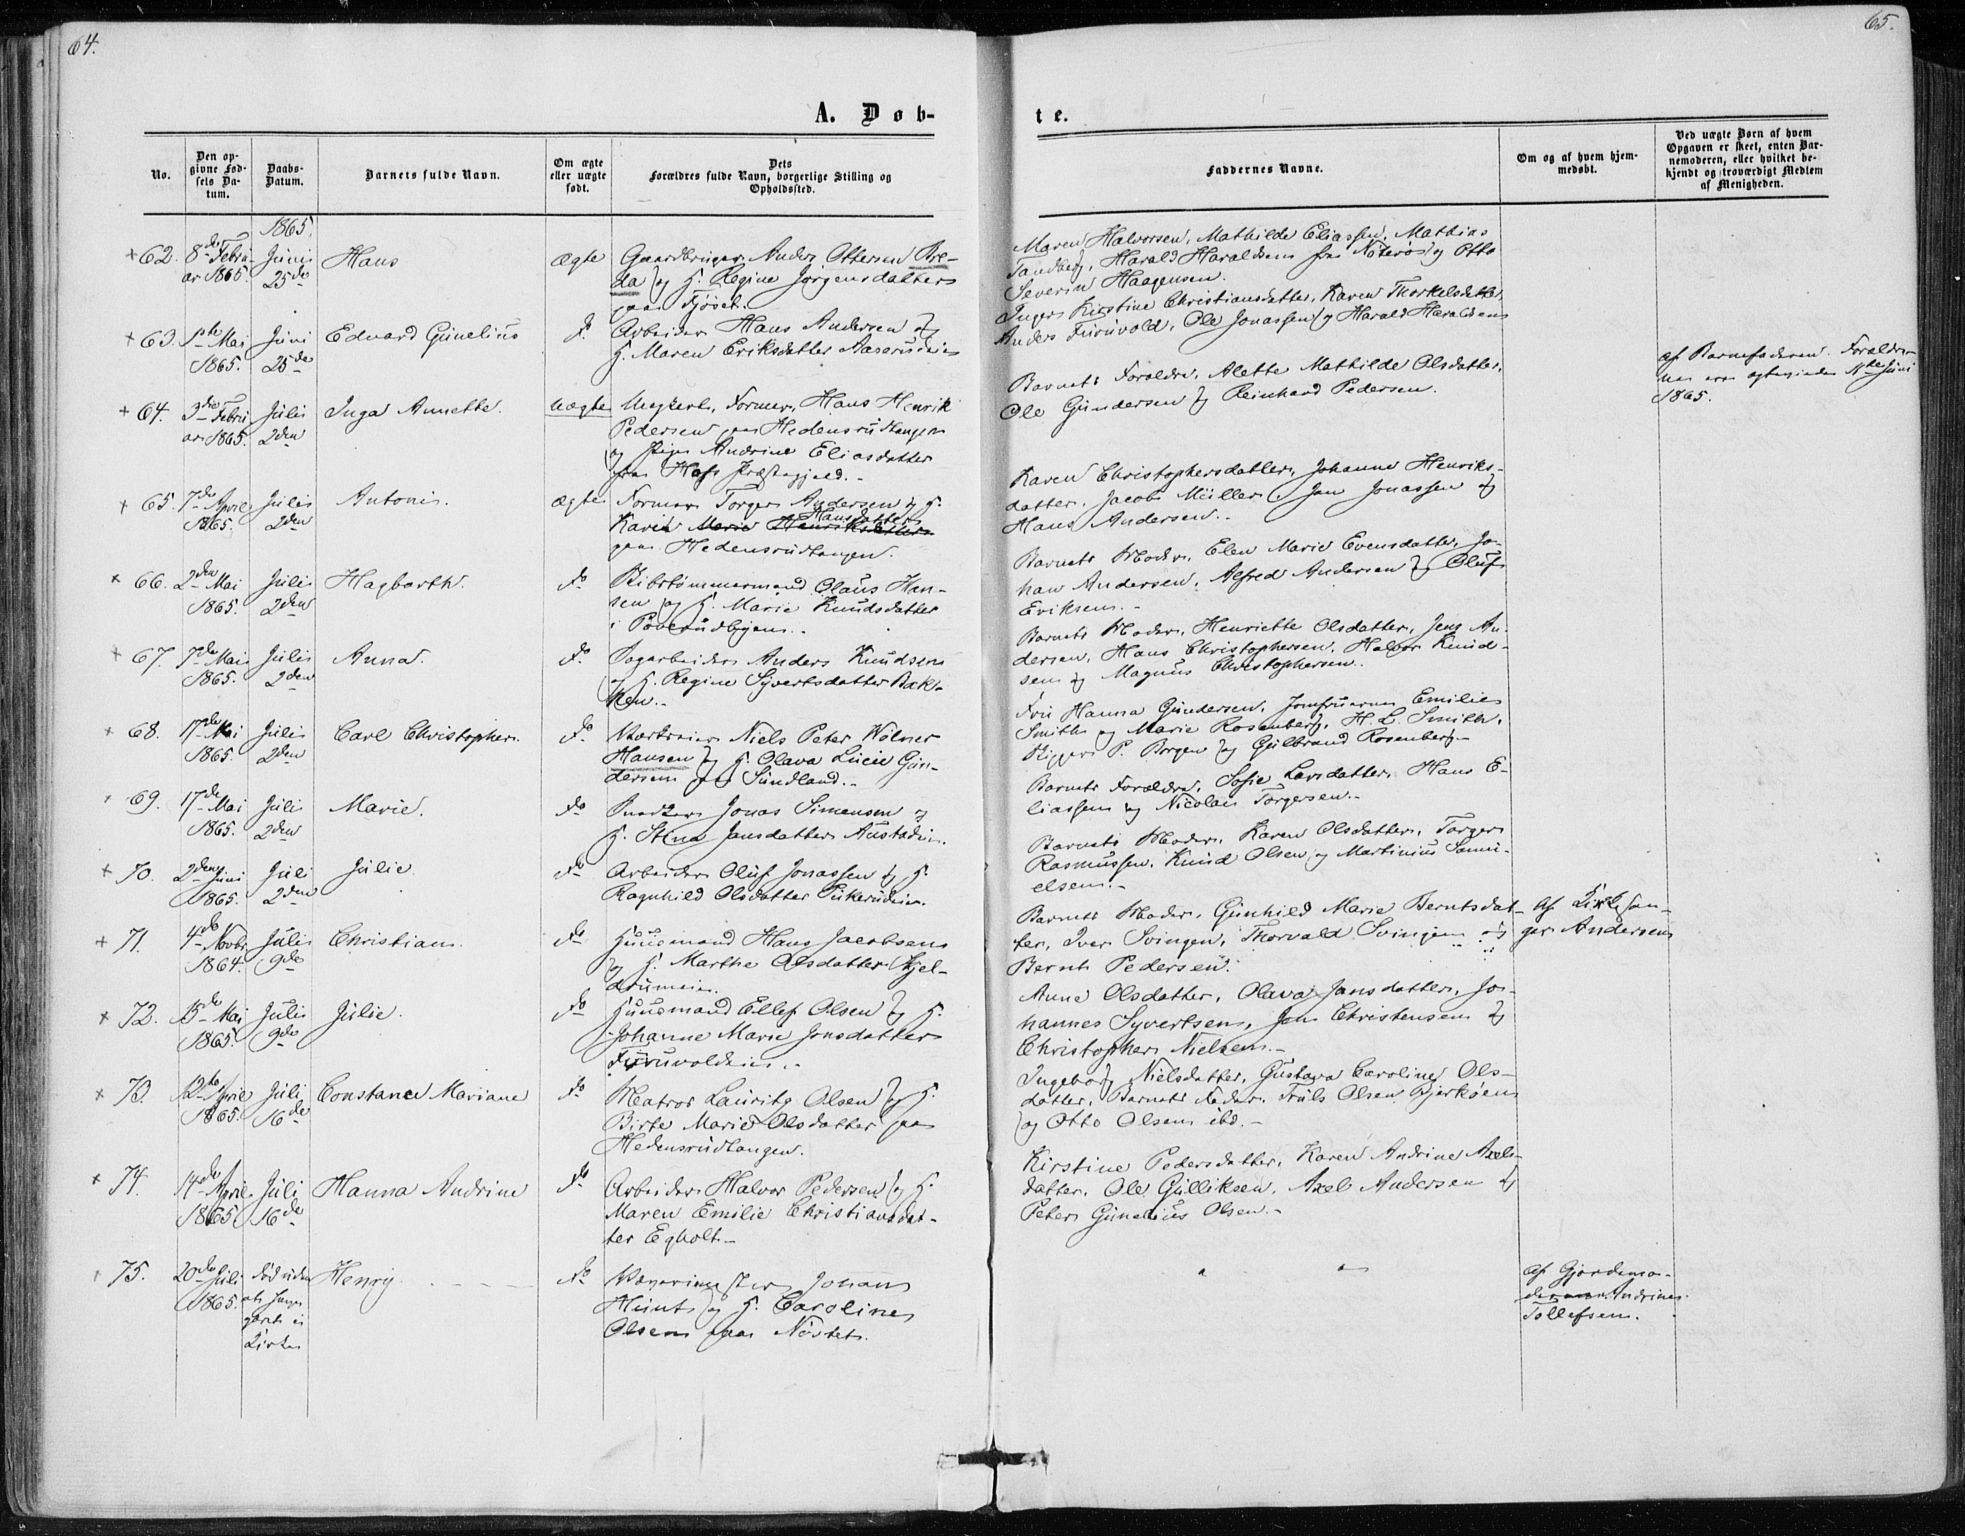 64.
A. Døb-
No.
Den op-
givne Fød-
sels Da-
tum.
Daabs-
Datum.
Barnets fulde Navn.
Om ægte
eller uægte
født.
Dets
Forældres fulde Navn, borgerlige Stilling og
Opholdssted.
1865.
62. 8de Febru- Juni Hans ægte Gaardbruger Anders Ottersen Bre-
ar 1865. 25de da og H. Regine Jørgensdatter
paa
63. 1ste Mai Juni Edvard Gunelius do Arbeider Hans Andersen og
1865. 25de H. Maren Eriksdatter
64. 3die Febru- Juli Inga Annette. uægte Ungkarl, Former, Hans Henrik
ar 1865. 2den Pedersen paa Hedensrudtangen
og Pige Andrine Eliasdatter
fra Hofs Præstegjeld.
65. 7de April Juli Antoni. ægte Former Torger Andersen og H.
1865. 2den Karen Marie Hansdatter
paa Hedensrudtangen.
66. 2den Mai Juli Hagbarth. do Skibstømmermand Olaus Han-
1865. 2den sen og H. Marie Knudsdatter
i
67. 7de Mai Juli Anna. do Sagarbeider Anders Knudsen
1865. 2den og H. Regine Syvertsdatter Bak-
ken.
68. 17de Mai Juli Carl Christopher. do Niels Peter Wølner
1865. 2den Hansen og H. Olava Lucie Gun-
dersen paa Sundland.
69. 17de Mai Juli Marie. do Snedker Jonas Simensen og
1865. 2den H. Stina Jansdatter
70. 2den Juni Juli Julie. do Arbeider Oluf Jonassen og H.
1865. 2den Ragnhild Olsdatter
71. 4de Novbr. Juli Christian. do Huusmand Hans Jacobsen
1864. 9de og H. Marthe Olsdatter
72. 15de Mai Juli Julie. do Huusmand Ellef Olsen og H.
1865. 9de Johanne Marie Jonsdatter
Furuvoldeie.
73. 12te April Juli Constance Mariane do Matros Lauritz Olsen og H.
1865. 16de Birte Marie Olsdatter paa
Hedensrudtangen.
74. 14de April Juli Hanna Andrine do Arbeider Halvor Pedersen og H.
1865 16de Maren Emilie Christiansdat-
ter Egholt.
75. 20de Juli død uden Henry do Johan
1865. at og H. Caroline
i Olsen paa Nøstet.
Kirken
65.
te.
Faddernes Navne.
Om og af hvem hjem-
medøbt.
Ved uægte Børn af hvem
Opgaven er skeet, enten Bar-
nemoderen, eller hvilket be-
kjendt og troværdigt Medlem
af Menigheden.
Maren Halvorsen, Mathilde Eliassen, Mathias
Sandberg, Harald Haraldsen fra Nøterø og Otto
Severin Haagensen.
Inger Kirstine Christiansdatter, Karen Thorkelsdatter,
Anders Furuvold, Ole Jonassen og Harald Haraldsen
Barnets Forældre, Alette Mathilde Olsdatter,
Ole Gundersen og Reinhard Pedersen.
af Barnefaderen. Forældre-
ne ere Juni
1865.
Karen Christophersdatter, Johanne Henriks-
datter, Jacob Müller, Jan Jonassen og
Hans Andersen.
Barnets Moder, Elen Marie Evensdatter, Jo-
han Andersen, Alfred Andersen og Oluf
Eriksen.
Barnets Moder, Henriette Olsdatter, Jens An-
dersen, Hans Christophersen, Halvor Knud-
sen og Magnus Christophersen.
Fru Hanna Gundersen, Jomfruerne Emilie
Smith og Marie Rosenberg, H. L. Smith,
Rigger P. Borgen og Gulbrand Rosenberg.
Barnets Forældre, Sofie Larsdatter, Hans E-
liassen og Nicolai Torgersen.
Barnets Moder, Karen Olsdatter, Torger
Rasmussen, Knud Olsen og Martinius Samu-
elsen.
Barnets Moder, Gunhild Marie Berntsdat-
ter, Iver Svingen, Thorvald Svingen og
Bernt Pedersen.
af Kirkesan-
ger Andersen
Anne Olsdatter, Olava Jansdatter, Jo-
hannes Syvertsen, Jon Christensen og
Christopher Nielsen.
Ingeborg Nielsdatter, Gustava Caroline Ols-
datter, Barnets Fader, Truls Olsen Bjerkøen
og Otto Olsen ibd.
Kirstine Pedersdatter, Karen Andrine Axels-
datter, Ole Gulliksen, Axel Andersen og
Peter Gunelius Olsen.
af Gjordemo-
Andrine
Tollefsen.